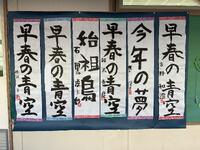 早春の青空
今年の夢
早春の青空
始祖鳥
早春の青空
早春の青空